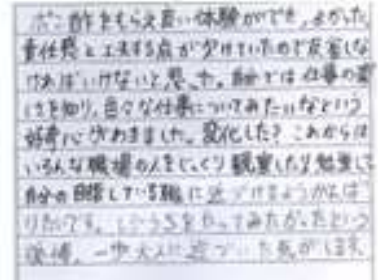 ポン酢をもらえ良い体験ができ、よかった
責任感と工夫する点が欠けていたので反省しな
ければいけないと思った。自分では仕事の
さを知り、色々な仕事についてみたいなという
好奇心がわきました。変化した? これからは
いろんな職場の人をじっくり観察したり勉強して
自分の目指している職に近づけるようがんば
りたいです。 をやってみたかったという
後悔、一歩大人に近づいた気がします